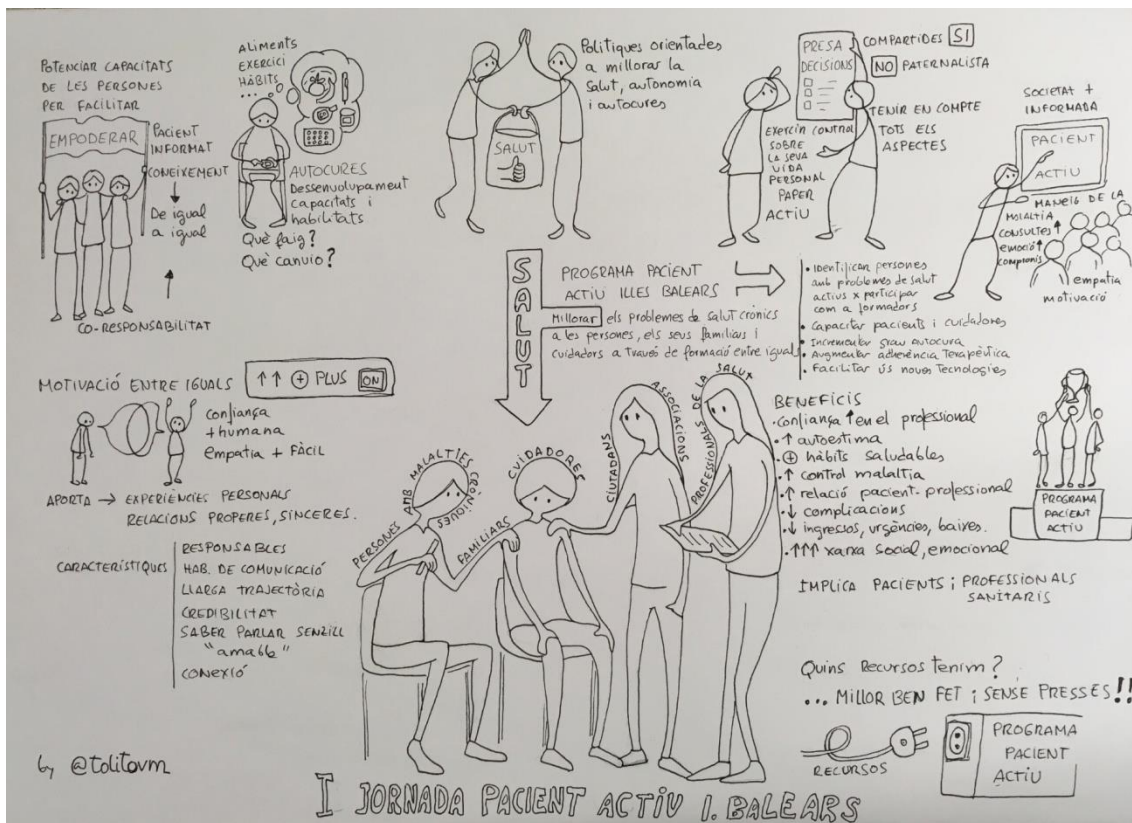 POTENCIAR CAPACITATS
DE LES PERSONES
PER FACILITAR
EMPODERAR
PACIENT
INFORMAT
CONEIXEMENT
De igual
a igual
CO-RESPONSABILITAT
ALIMENTS
EXERCICI
HÀBITS
...
AUTOCURES
Dessenvolupament
capacitats i
habilitats
Què faig?
Què canvio?
SALUT
Polítiques orientades
a millorar la
salut, autonomia
i autocures
PRESA
DECISIONS
COMPARTIDES SI
NO PATERNALISTA
TENIR EN COMPTE
TOTS ELS
ASPECTES
Exercir control
SOBRE
LA SEVA
VIDA
PERSONAL
PAPER
ACTIU
SOCIETAT +
INFORMADA
PACIENT
ACTIU
MANEIG DE LA
MALALTIA
CONSULTES ↑
emoció ↑
compromís
empatia
motivació
SALUT
PROGRAMA PACIENT
ACTIU ILLES BALEARS
Millorar els problemes de salut crònics
a les persones, els seus familiars i
cuidadors a través de formació entre iguals
• Identificar persones
amb problemes de salut
actius x participar
com a formadors
• Capacitar pacients i cuidadores
• Incrementar grau autocura
• Augmentar adherència terapèutica
• Facilitar ús noves tecnologies
MOTIVACIÓ ENTRE IGUALS
↑↑ ⊕ PLUS ON
confiança
+ humana
empatia + FÀCIL
APORTA → EXPERIÈNCIES PERSONALS
RELACIONS PROPERES, SINCERES.
CARACTERÍSTIQUES
RESPONSABLES
HAB. DE COMUNICACIÓ
LLARGA TRAJECTÒRIA
CREDIBILITAT
SABER PARLAR SENZILL
"amable"
CONEXIÓ
PERSONES AMB MALALTIES CRÒNIQUES
FAMILIARS
CUIDADORES
CIUTADANS
ASSOCIACIONS
PROFESSIONALS DE LA SALUT
BENEFICIS
• confiança ↑ en el professional
• ↑ autoestima
• ⊕ hàbits saludables
• ↑ control malaltia
• ↑ relació pacient-professional
• ↓ complicacions
• ↓ ingressos, urgències, baixes.
• ↑↑↑ xarxa social, emocional
PROGRAMA
PACIENT
ACTIU
IMPLICA PACIENTS i PROFESSIONALS
SANITARIS
Quins Recursos tenim?
... MILLOR BEN FET i SENSE PRESSES!!
RECURSOS
PROGRAMA
PACIENT
ACTIU
by @tolitovm
I JORNADA PACIENT ACTIU I. BALEARS